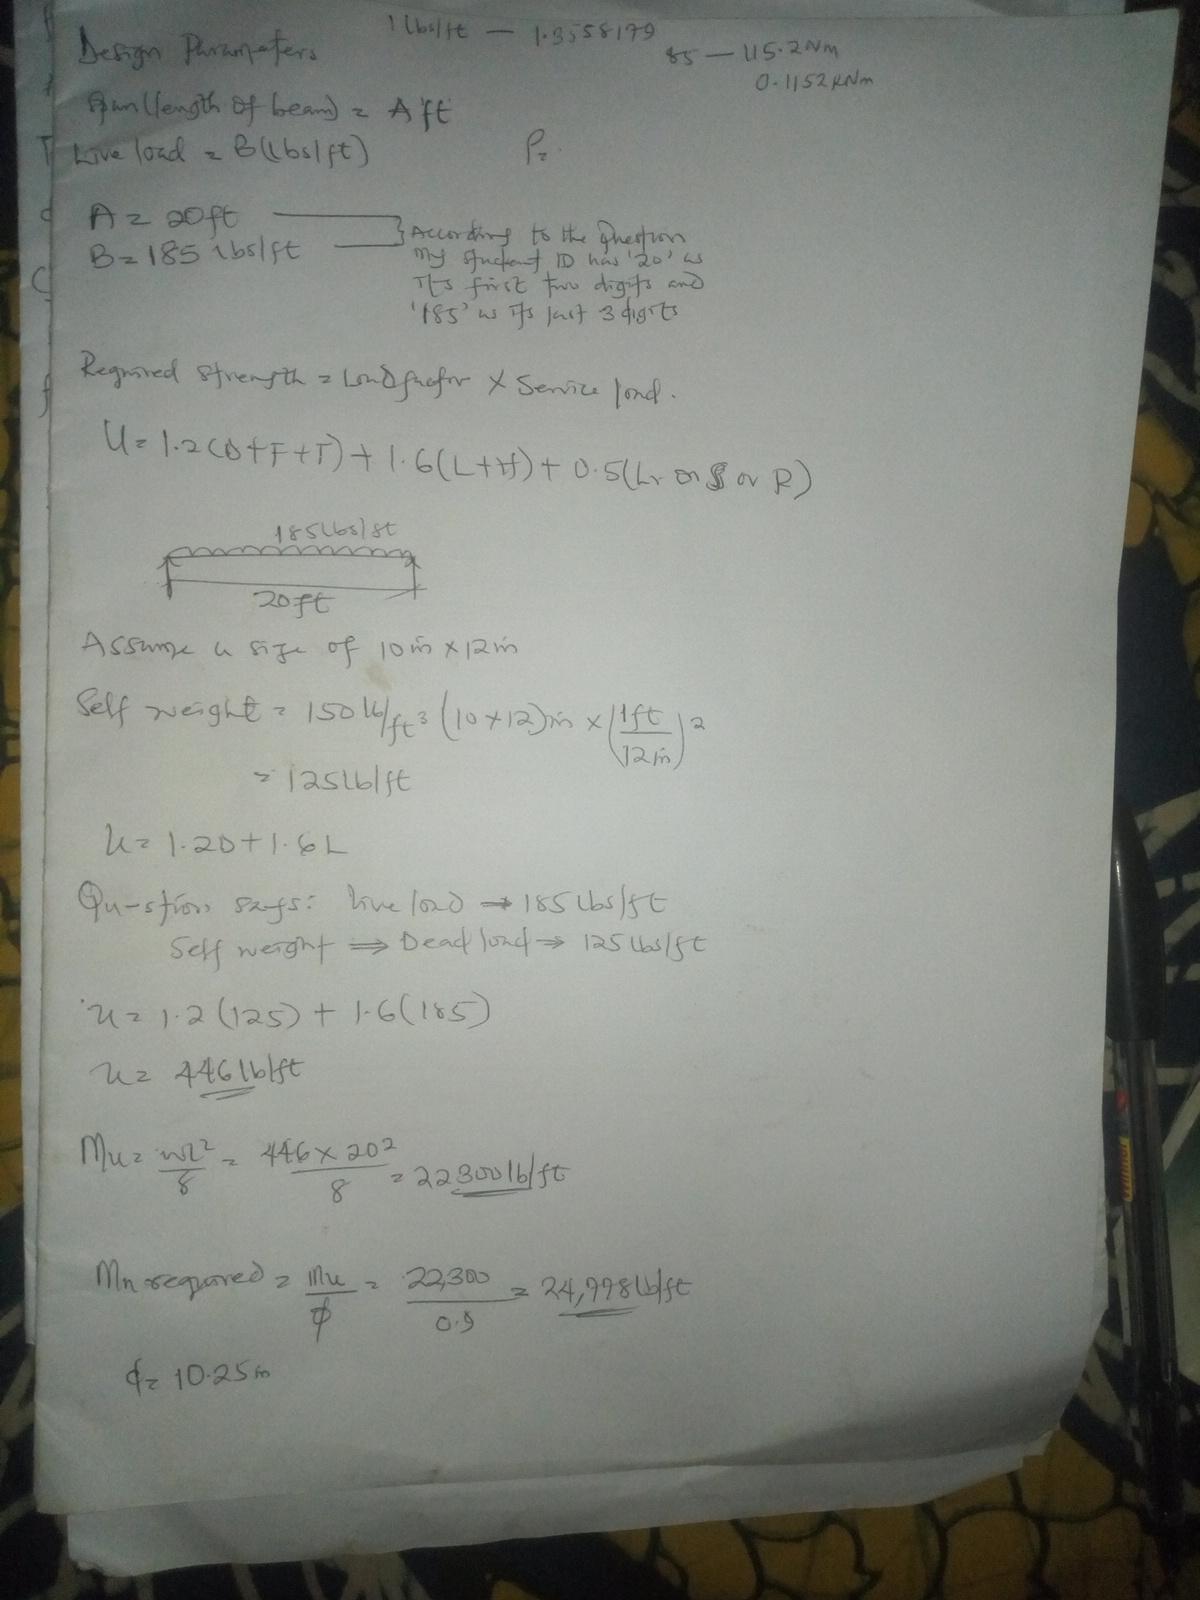 1 lbs/ft — 1.3558179
85 — 115.2Nm
0.1152KNm
Design Parameters
Span (length of beam) = A ft
Live load = B(Lbs/ft)
P=
A = 20ft
B = 185 lbs/ft
According to the Question
my student ID has '20' as
its first two digits and
'185' as its last 3 digits
Required strength = Load factor × Service load.
U = 1.2(D+F+T) + 1.6(L+H) + 0.5(Lr or S or R)
185Lbs/ft
20ft
Assume a size of 10in × 12in
Self weight = 150 lb/ft³ (10 × 12)in × (1ft/12in)²
= 125lb/ft
U = 1.2D + 1.6L
Question says: Live load → 185 Lbs/ft
Self weight ⇒ Dead load ⇒ 125 Lbs/ft
U = 1.2(125) + 1.6(185)
U = 446lb/ft
Mu = wL²/8 = 446 × 20²/8 = 22300lb/ft
Mn required = Mu/φ = 22,300/0.9 = 24,778lb/ft
d = 10.25in